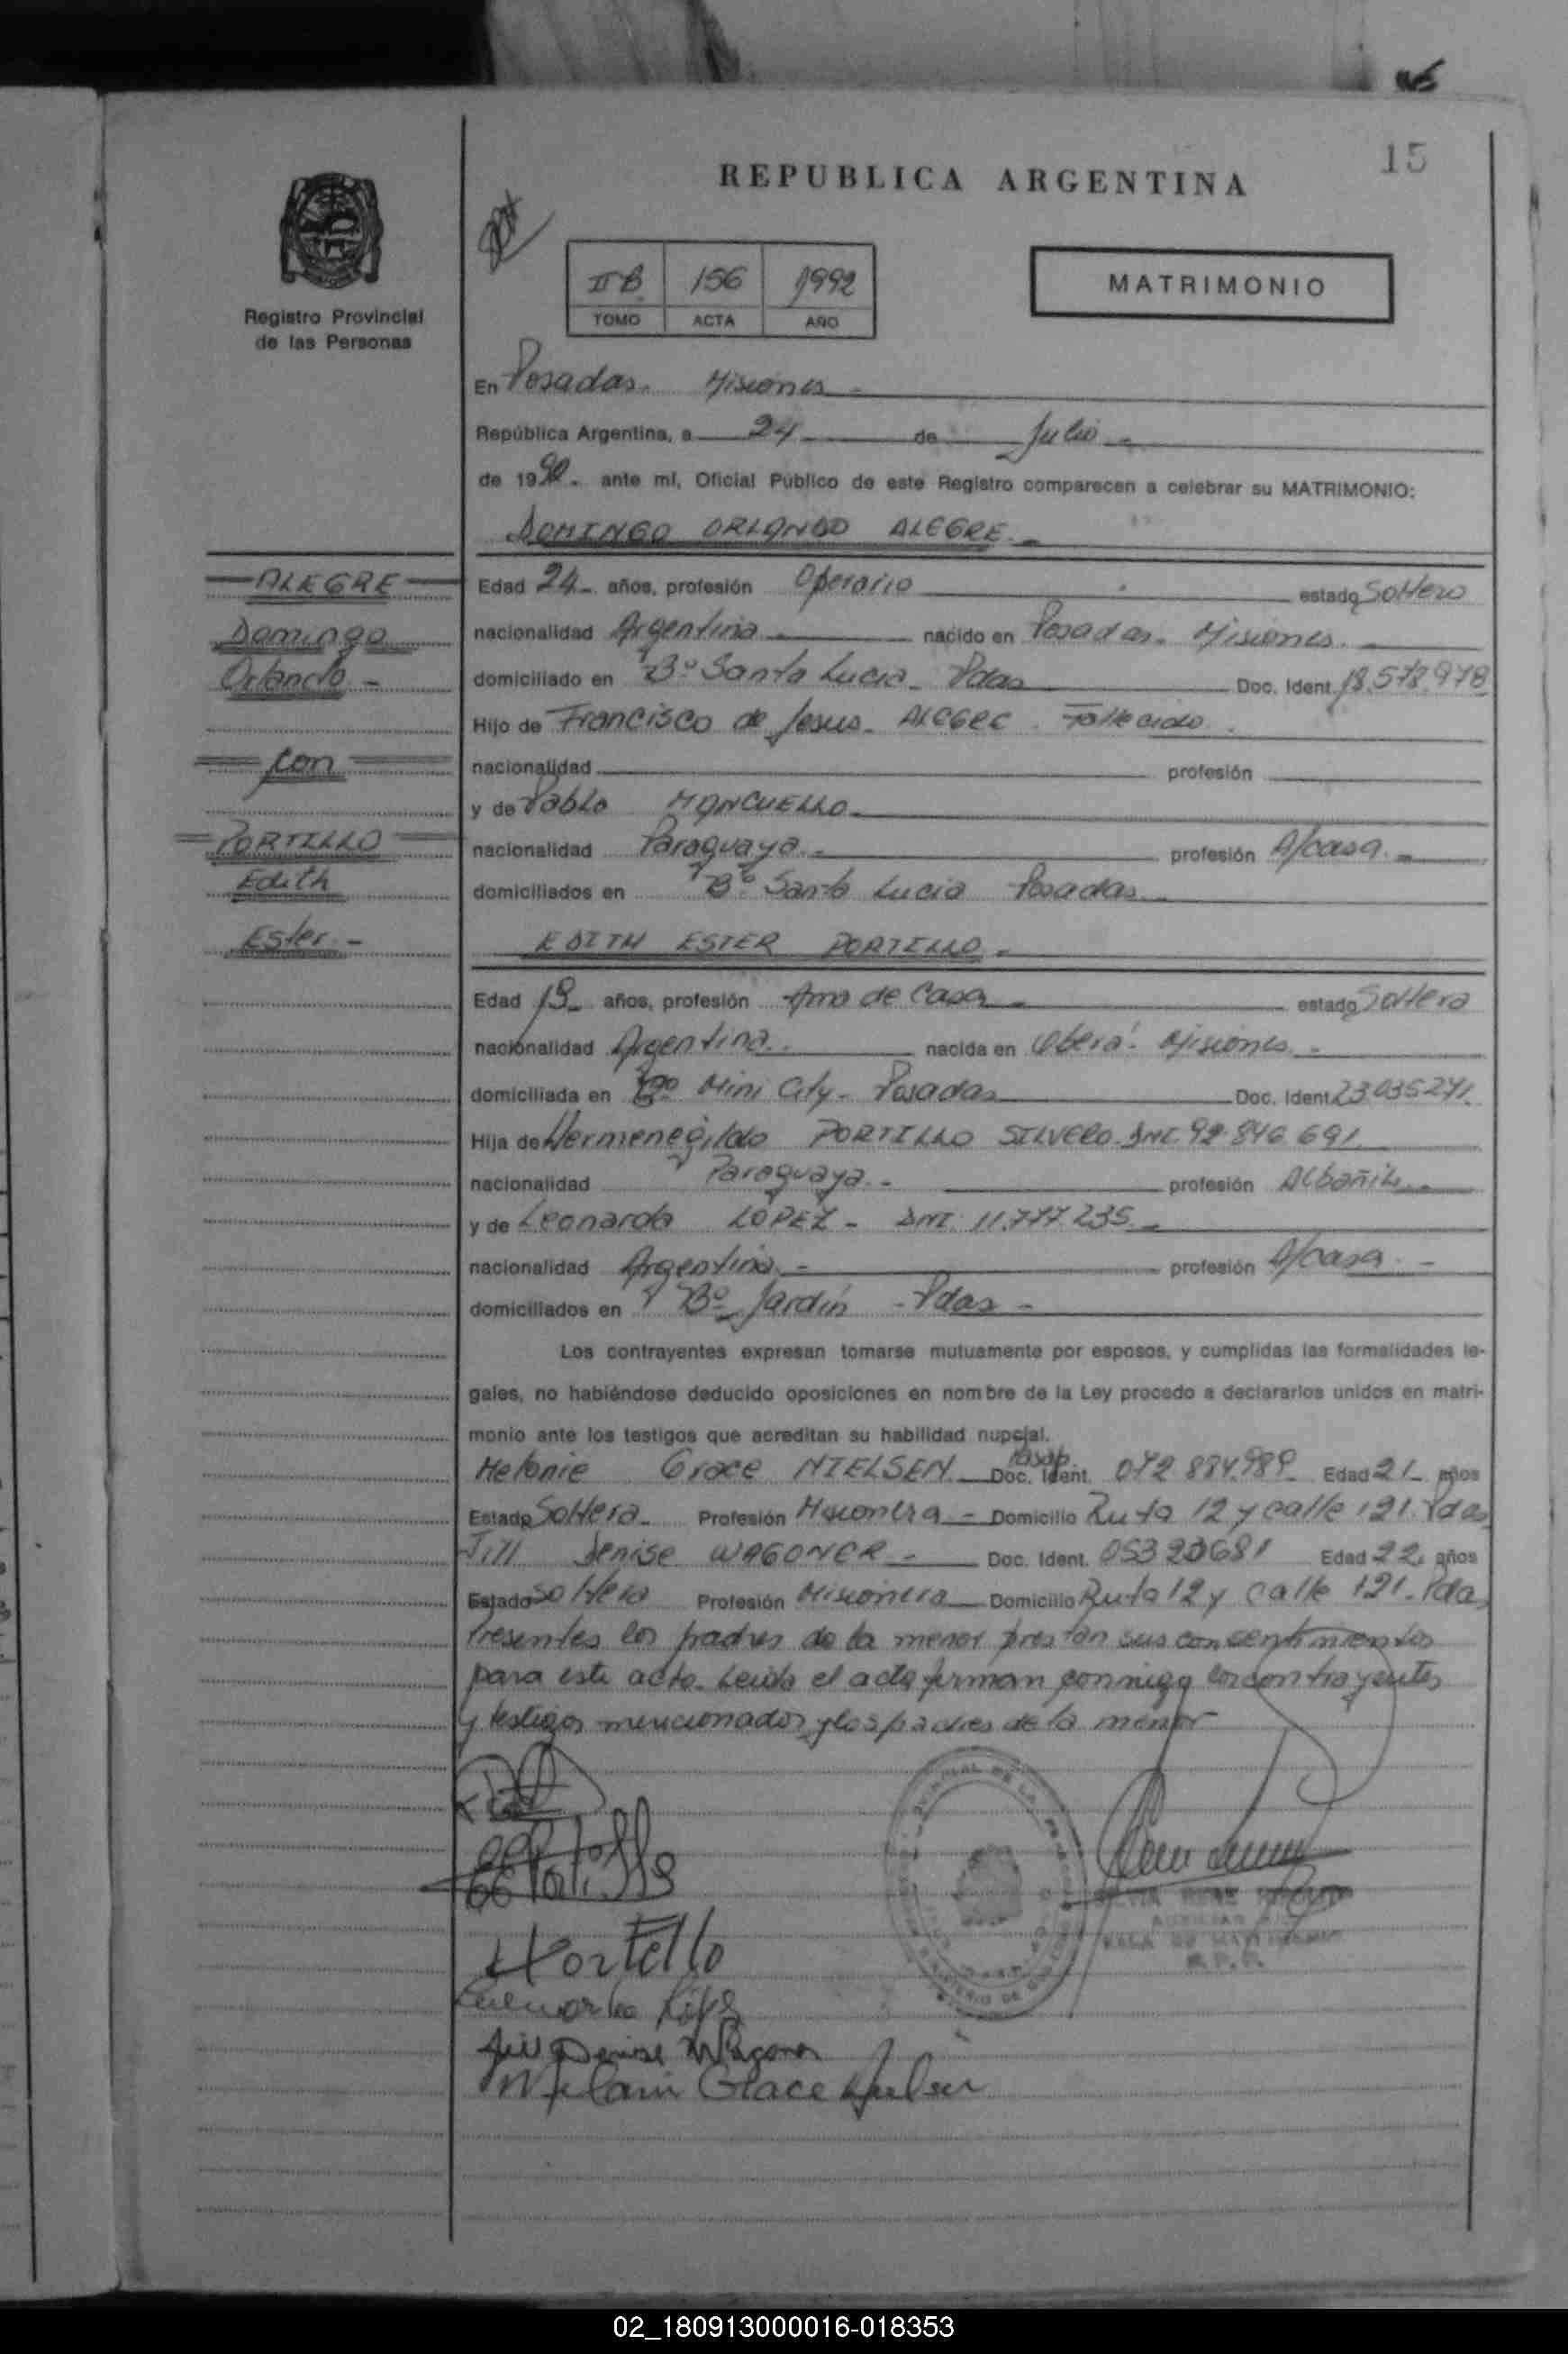 15
REPUBLICA ARGENTINA
Registro Provincial
de las Personas
II B 156 1992
TOMO ACTA AÑO
MATRIMONIO
En Posadas. Misiones
República Argentina, a 24 de Julio
de 1992. ante mí, Oficial Público de este Registro comparecen a celebrar su MATRIMONIO:
DOMINGO ORLANDO ALEGRE
ALEGRE
Domingo
Orlando
con
PORTILLO
Edith
Ester
Edad 24 años, profesión Operario estado Soltero
nacionalidad Argentina nacido en Posadas. Misiones
domiciliado en Bº Santa Lucia. Pdas Doc. Ident. 18.578.978
Hijo de Francisco de Jesus. ALEGRE. Fallecido
nacionalidad profesión
y de Pabla MONCUELLO
nacionalidad Paraguaya profesión A/casa.
domiciliados en Bº Santa Lucia Posadas
EDITH ESTER PORTILLO
Edad 19 años, profesión Ama de Casa estado Soltera
nacionalidad Argentina. nacida en Oberá. Misiones
domiciliada en Bº Mini City. Posadas Doc. Ident. 23.035.271.
Hija de Hermenegildo PORTILLO SILVERO. DNI. 92.846.691.
nacionalidad Paraguaya. profesión Albañil.
y de Leonarda LOPEZ - DNI. 11.777.235.
nacionalidad Argentina profesión A/casa
domiciliados en Bº Jardín - Pdas -
Los contrayentes expresan tomarse mutuamente por esposos, y cumplidas las formalidades le-
gales, no habiéndose deducido oposiciones en nombre de la Ley procedo a declararlos unidos en matri-
monio ante los testigos que acreditan su habilidad nupcial.
Melanie Grace NIELSEN Pasap. Doc. Ident. 072 884.989 Edad 21 años
Estado Soltera. Profesión Misionera - Domicilio Ruta 12 y calle 121. Pdas
Jill Denise WAGONER - Doc. Ident. Edad 22 años
Estado Soltera Profesión Misionera Domicilio Ruta 12 y calle 121. Pdas
Presentes los padres de la menor prestan sus consentimientos
para este acto. Leida el acta firman conmigo los contrayentes
y testigos mencionados y los padres de la menor
Portillo
Jill Denise Wagoner
Melanie Grace Nielsen
02_180913000016-018353